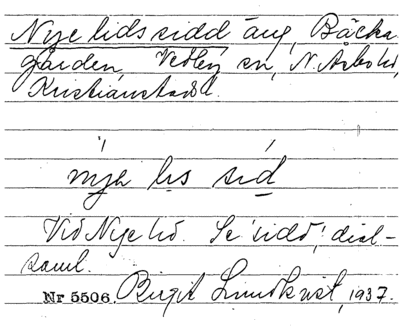 Nyelidssidd äng, Bäcka
gården, Vedby sn, N. Åsbo hd,
Kristianstads l.
nyə lis sid
Vid Nye lid. Se sidd, dial-
saml.
Nr 5506. Birgit Lundkvist, 1937.